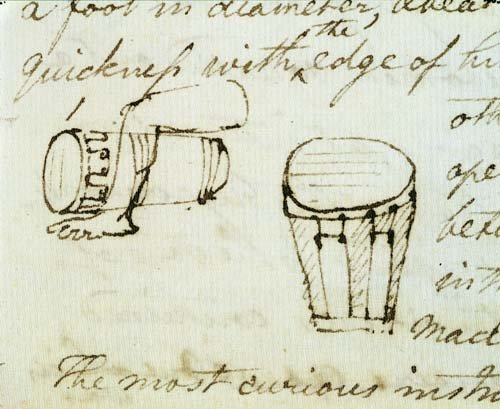 a foot in diameter,
the
quickness with ^ edge of
oth
ope
betw
in th
Mad
The most curious instr